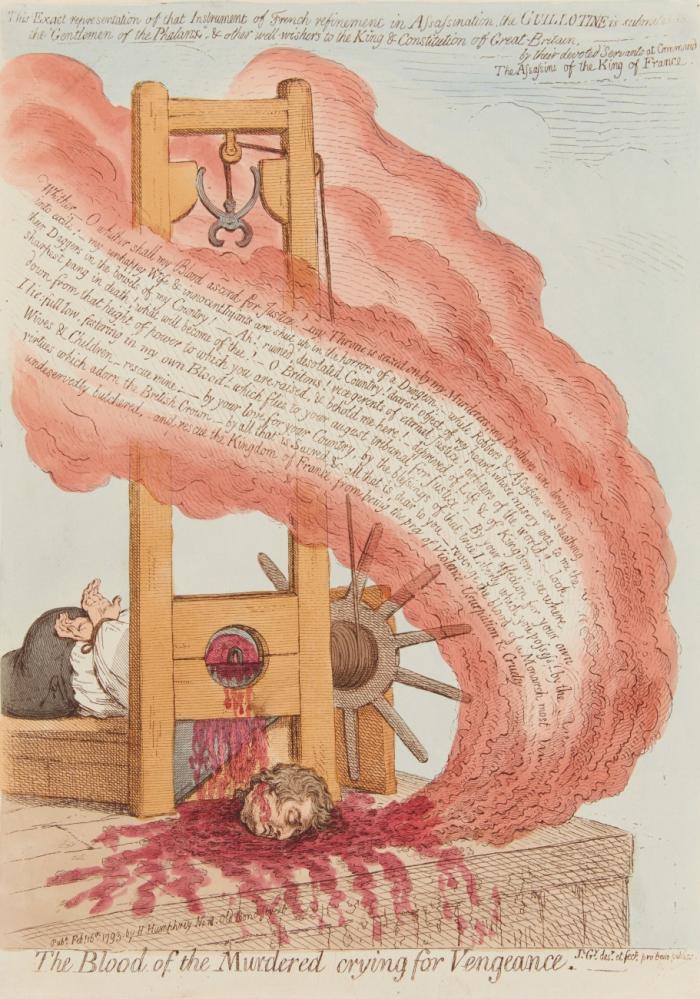 This Exact representation of that Instrument of French refinement in Assassination, the GUILLOTINE is submitted to
the Gentlemen of the Phalanx, & other well-wishers to the King & Constitution of Great-Britain,
by their devoted Servants at Command
The Assassins of the King of France.
Whither, O whither shall my Blood ascend for Justice! my Throne is seized on by my Murderers; my Brothers are driven
into exile; my unhappy Wife & innocent Infants are shut up in the horrors of a Dungeon; while Robbers & Assassins are sheathing
their Daggers in the bowels of my Country! Ah! ruined, desolated Country! dearest object of my heart! whose misery was to me the
sharpest pang in death! what will become of thee! O Britons! vicegerents of eternal Justice! arbiters of the world! look
down from that height of power to which you are raised, & behold me here! deprived of Life & of Kingdom, see where
I lie; full low, festering in my own Blood! which flies to your august tribunal for Justice! By your affection for your own
Wives & Children rescue mine: by your love for your Country, by the blessings of that true Liberty which you possess, by the
virtues which adorn the British Crown by all that is Sacred & all that is dear to you revenge the blood of a Monarch most
undeservedly butchered, and rescue the Kingdom of France from being the prey of Violence, Usurpation & Cruelty.
Pubd. Feb. 16th. 1793. by H. Humphrey No. 18. Old Bond Street
Js. Gy. desn. et fect. pro bono publico
The Blood of the Murdered crying for Vengeance.